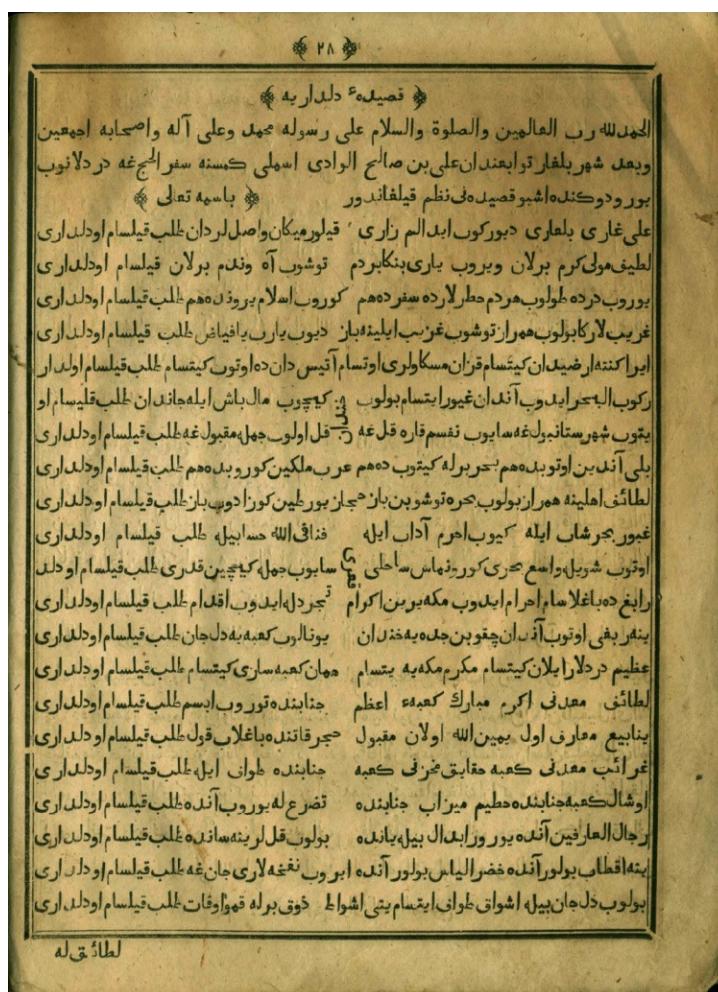 ۲۸
قصيدهء دلداريه
الحمدلله رب العالمين والصلوة والسلام على رسوله محمد وعلى آله واصحابه اجمعين
وبعد شهر بلغار توابعندان على بن صالح الوادى اسملى كمسنه سفر الحج غه در دلانوب
يورودوكنده اشبو قصيده نى نظم قيلغاندور باسمه تعالى
على غارى بلغارى ديوركوب ايدالم زارى قيلورميكان واصل لردان طلب قيلسام اودلدارى
لطيف مولى كرم برلان ويروب يارى بنكا بردم توشوب آه وندم برلان قيلسام اودلدارى
يوروب درده طولوب هردم خطرلارده سفرده هم كوروب اسلام يروننده هم طلب قيلسام اودلدارى
غريب لاركا بولوب همراز توشوب غربب ايلينه باز ديوب يارب يافياض طلب قيلسام اودلدارى
ايراكنته ارضيدان كيتسام قزان مسكاولرى اوتسام آتيس دان ده اوتوب كيتسام طلب قيلسام اولدار
ركوب البحر ايدوب آندان غيور ايتسام بولوب خندان كيچوب مال باش ايله جاندان طلب قليسام او
يتوب شهر ستانبول غه سايوب نفسم قاره قل غه قل اولوب جمله مقبول غه طلب قيلسام اودلدارى
بلى آندين اوتوبده هم بحر برله كيتوب ده هم عرب ملكين كوروبده هم طلب قيلسام اودلدارى
لطائف اهلينه همراز بولوب بحره توشوبن باز حجاز يورطين كوزادوب باز طلب قيلسام اودلدارى
غبور بحر شاب ايله كيوب احرم آداب ايله فنافى الله حسابيله طلب قيلسام اودلدارى
اوتوب شويله واسع بحرى كورونماس ساحلى قعرى سايوب جمله كيچين قدرى طلب قيلسام اودلد
رابغ ده باغلاسام احرام ايدوب مكه يرين اكرام تجردله ايدوب اقدام طلب قيلسام اودلدارى
ينه ريغى اوتوب آندان چقوبن جده يه خندان يونالوب كعبه يه دل جان طلب قيلسام اودلدارى
عظيم دردلار ايلان كيتسام مكرم مكه يه يتسام همان كعبه سارى كيتسام طلب قيلسام اودلدارى
لطائف معدنى اكرم مبارك كعبهء اعظم جنابنده توروب ابسم طلب قيلسام اودلدارى
ينابيع معارف اول يمين الله اولان مقبول حجر قاتنده باغلاب قول طلب قيلسام اودلدارى
غرائب معدنى كعبه حقايق مخزنى كعبه جنابنده طواف ايله طلب قيلسام اودلدارى
اوشال كعبه جنابنده حطيم ميزاب جنابنده تضرع له يوروب آنده طلب قيلسام اودلدارى
رجال العارفين آنده يورور ابدال بيله يانده بولوب قل لرينه سانده طلب قيلسام اودلدارى
ينه اقطاب بولور آنده خضر الياس بولور آنده ايروب نفغه لارى جان غه طلب قيلسام اودلدارى
بولوب دل جان بيله اشواق طواف ايتسام يتى اشواط ذوق برله قهو اوقات طلب قيلسام اودلدارى
لطائف له